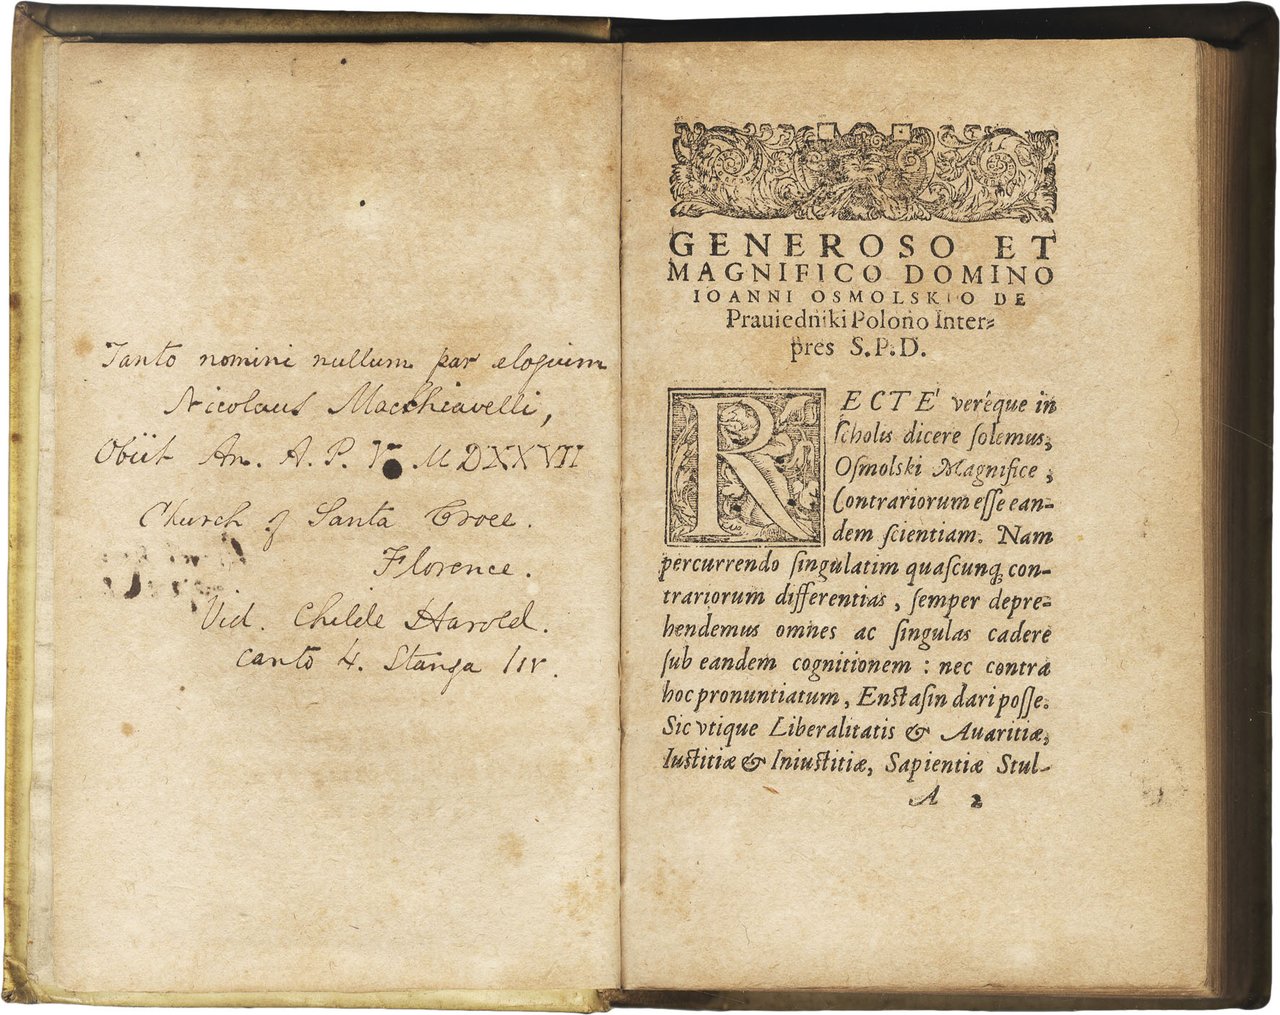 Tanto nomini nullum par elogium
Nicolaus Macchiavelli,
Obiit An. A. P. V. MDXXVII
Church of Santa Croce.
Florence.
Vid. Childe Harold.
canto 4. Stanza liv.
GENEROSO ET
MAGNIFICO DOMINO
IOANNI OSMOLSKIO DE
Prauiedniki Polono Inter-
pres S.P.D.
RECTE' veréque in
ſcholis dicere ſolemus,
Oſmolski Magnifice,
Contrariorum eſſe ean-
dem ſcientiam. Nam
percurrendo ſingulatim quaſcunq; con-
trariorum differentias, ſemper depre-
hendemus omnes ac ſingulas cadere
ſub eandem cognitionem : nec contra
hoc pronuntiatum, Enſtaſin dari poſſe.
Sic vtique Liberalitatis & Auaritiæ,
Iuſtitiæ & Iniuſtitiæ, Sapientiæ Stul-
A 2